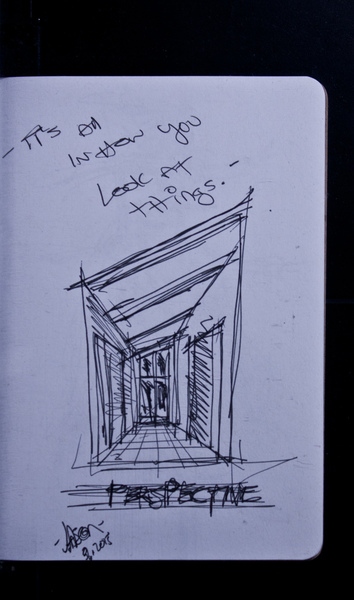 - IT'S All
IN HOW YOU
LOOK AT
things. -
PERSPECTIVE